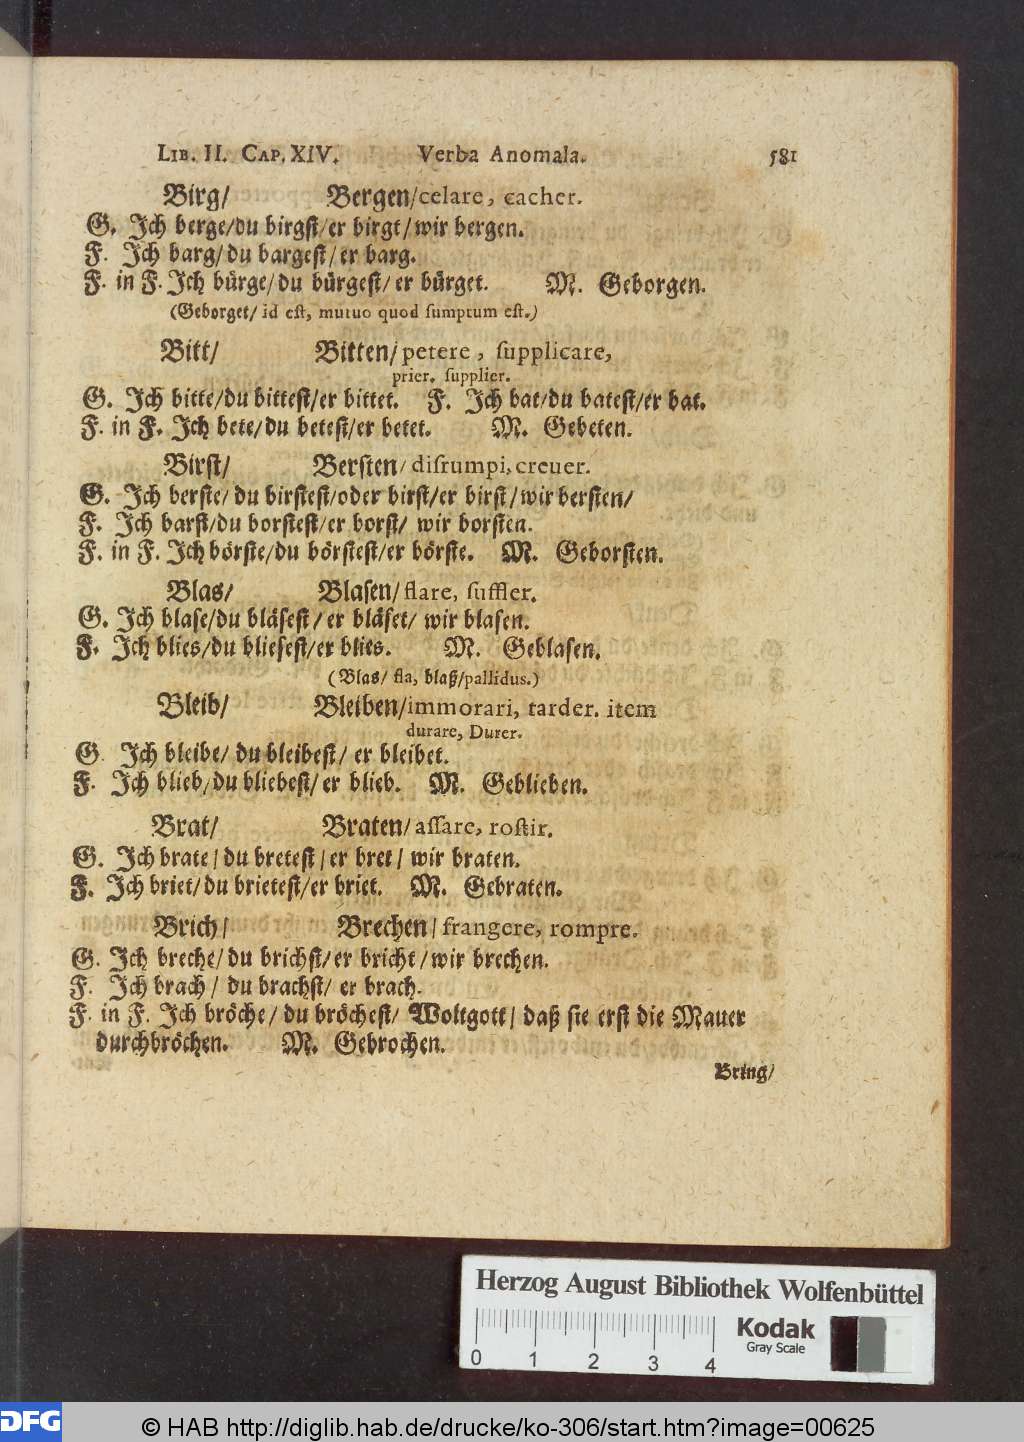 LIB. II. CAP. XIV. Verba Anomala. 581
Birg/ Bergen/celare, cacher.
G. Ich berge/du birgst/er birgt/wir bergen.
F. Ich barg/du bargest/er barg.
F. in F. Ich bürge/du bürgest/er bürget. M. Geborgen.
(Geborget/ id est, mutuo quod sumptum est.)
Bitt/ Bitten/petere, supplicare,
prier. supplier.
G. Ich bitte/du bittest/er bittet. F. Ich bat/du batest/er bat.
F. in F. Ich bete/du betest/er betet. M. Gebeten.
Birst/ Bersten/disrumpi, creuer.
G. Ich berste/du birstest/oder birst/er birst/wir bersten/
F. Ich barst/du borstest/er borst/ wir borsten.
F. in F. Ich börste/du börstest/er börste. M. Geborsten.
Blas/ Blasen/flare, suffler.
G. Ich blase/du bläsest/er bläset/ wir blasen.
F. Ich blies/du bliesest/er blies. M. Geblasen.
(Blas/ fla, blaß/pallidus.)
Bleib/ Bleiben/immorari, tarder. item
durare, Durer.
G Ich bleibe/ du bleibest/ er bleibet.
F. Ich blieb/du bliebest/er blieb. M. Geblieben.
Brat/ Braten/assare, rostir.
G. Ich brate/du bretest/er bret/ wir braten.
F. Ich briet/du brietest/er briet. M. Gebraten.
Brich/ Brechen/frangere, rompre.
G. Ich breche/du brichst/er bricht/wir brechen.
F. Ich brach/ du brachst/ er brach.
F. in F. Ich bröche/ du bröchest/ Woltgott/ daß sie erst die Mauer
durchbröchen. M. Gebrochen.
Bring/
Herzog August Bibliothek Wolfenbüttel
0 1 2 3 4
Kodak
Gray Scale
DFG
© HAB http://diglib.hab.de/drucke/ko-306/start.htm?image=00625